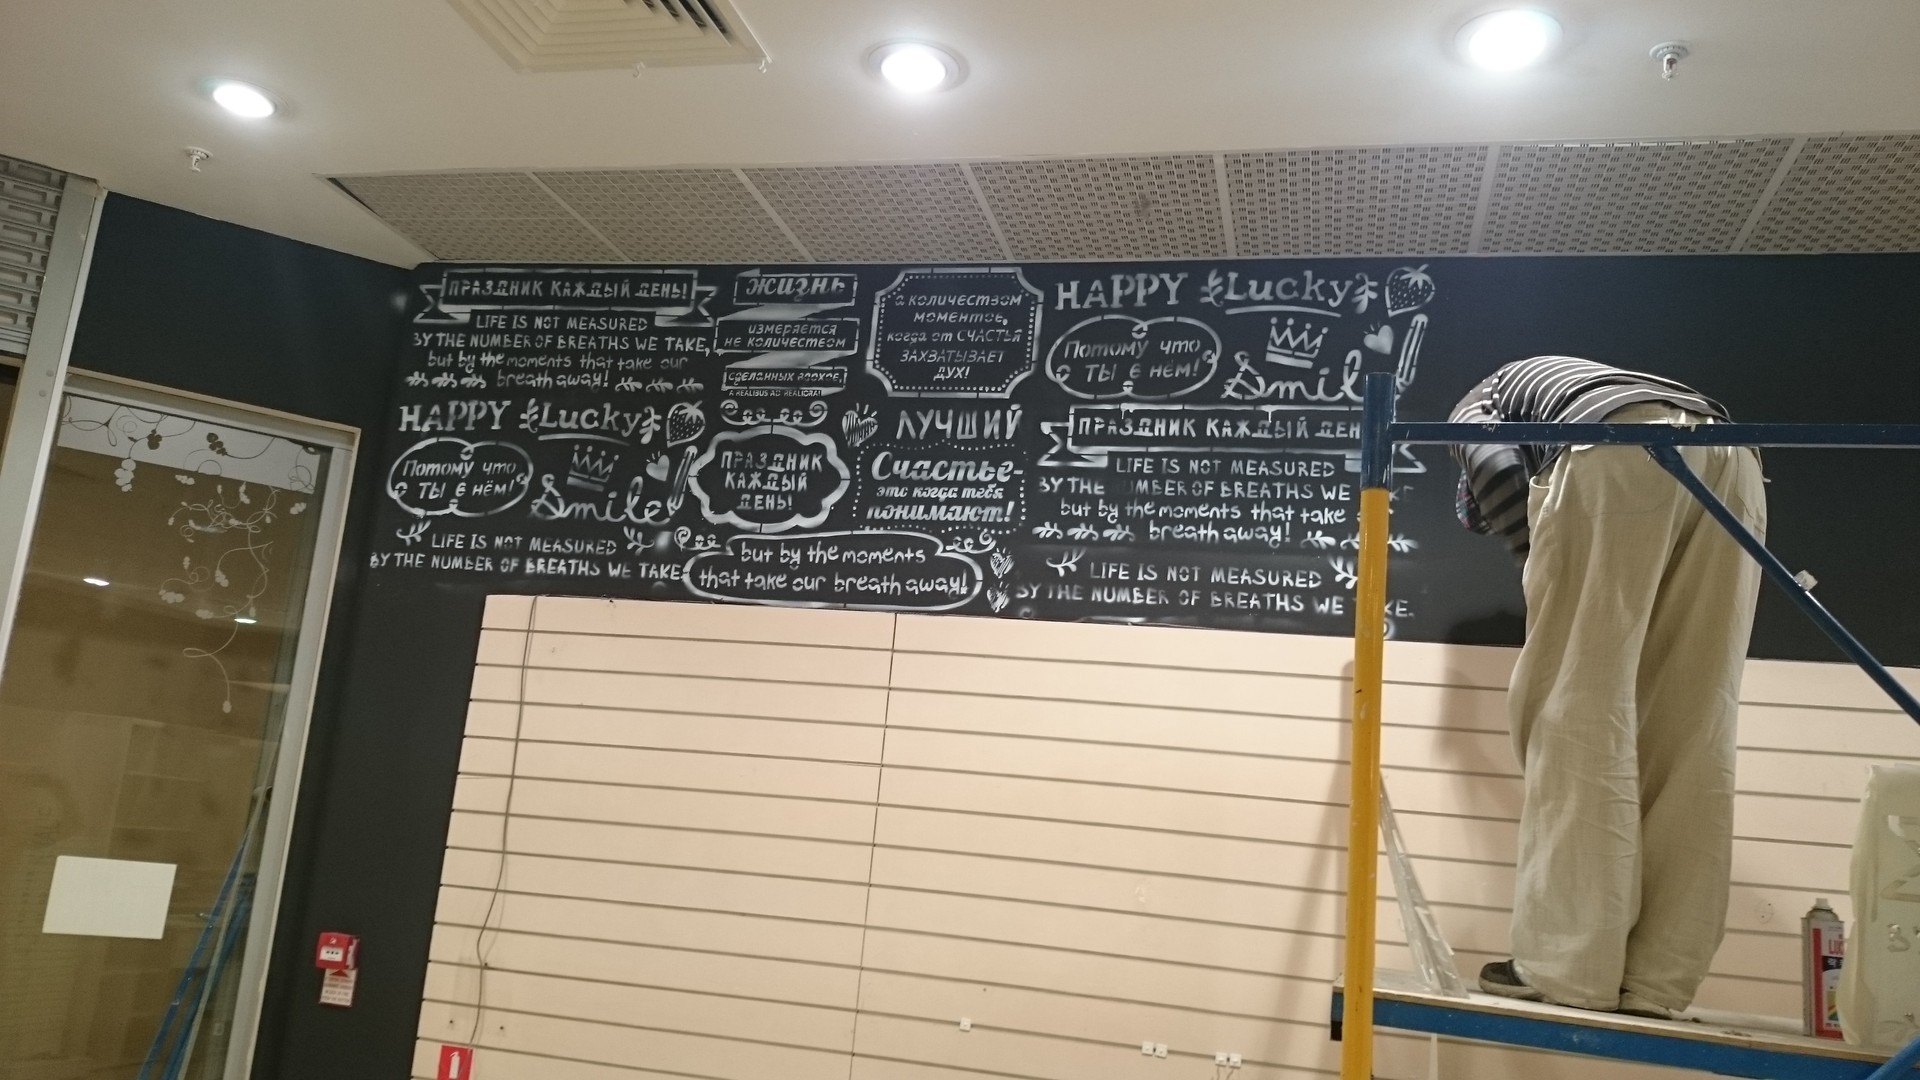 ПРАЗДНИК КАЖДЫЙ ДЕНЬ!
LIFE IS NOT MEASURED
BY THE NUMBER OF BREATHS WE TAKE,
but by the moments that take our
breath away!
HAPPY Lucky
Потому что
ТЫ в нём!
Smile
LIFE IS NOT MEASURED
BY THE NUMBER OF BREATHS WE TAKE
жизнь
измеряется
не количеством
сделанных вдохов,
A REALIBUS AD REALIORA!
ПРАЗДНИК
КАЖДЫЙ
ДЕНЬ!
but by the moments
that take our breath away!
а количеством
моментов,
когда от СЧАСТЬЯ
ЗАХВАТЫВАЕТ
ДУХ!
ЛУЧШИЙ
Счастье-
это когда тебя
понимают!
HAPPY Lucky
Потому что
ТЫ в нём!
Smil
ПРАЗДНИК КАЖДЫЙ ДЕН
LIFE IS NOT MEASURED
BY THE NUMBER OF BREATHS WE
but by the moments that take
breath away!
LIFE IS NOT MEASURED
BY THE NUMBER OF BREATHS WE KE.